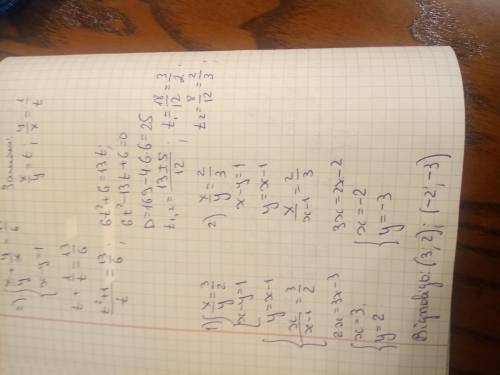 2) { x/y + y/x = 13/6 Заміна:
x-y=1 x/y = t, y/x = 1/t
t + 1/t = 13/6
t²+1/t = 13/6; 6t²+6=13t;
6t²-13t+6=0
D=169-4·6·6=25
t₁,₂ = 13±5/12; t₁ = 18/12 = 3/2;
t₂ = 8/12 = 2/3;
1) { x/y = 3/2
x-y=1
y=x-1
{ x/x-1 = 3/2
2x=3x-3
{ x=3,
y=2
2) x/y = 2/3
x-y=1
y=x-1
x/x-1 = 2/3
3x=2x-2
{ x=-2
y=-3
Відповідь: (3; 2); (-2; -3)